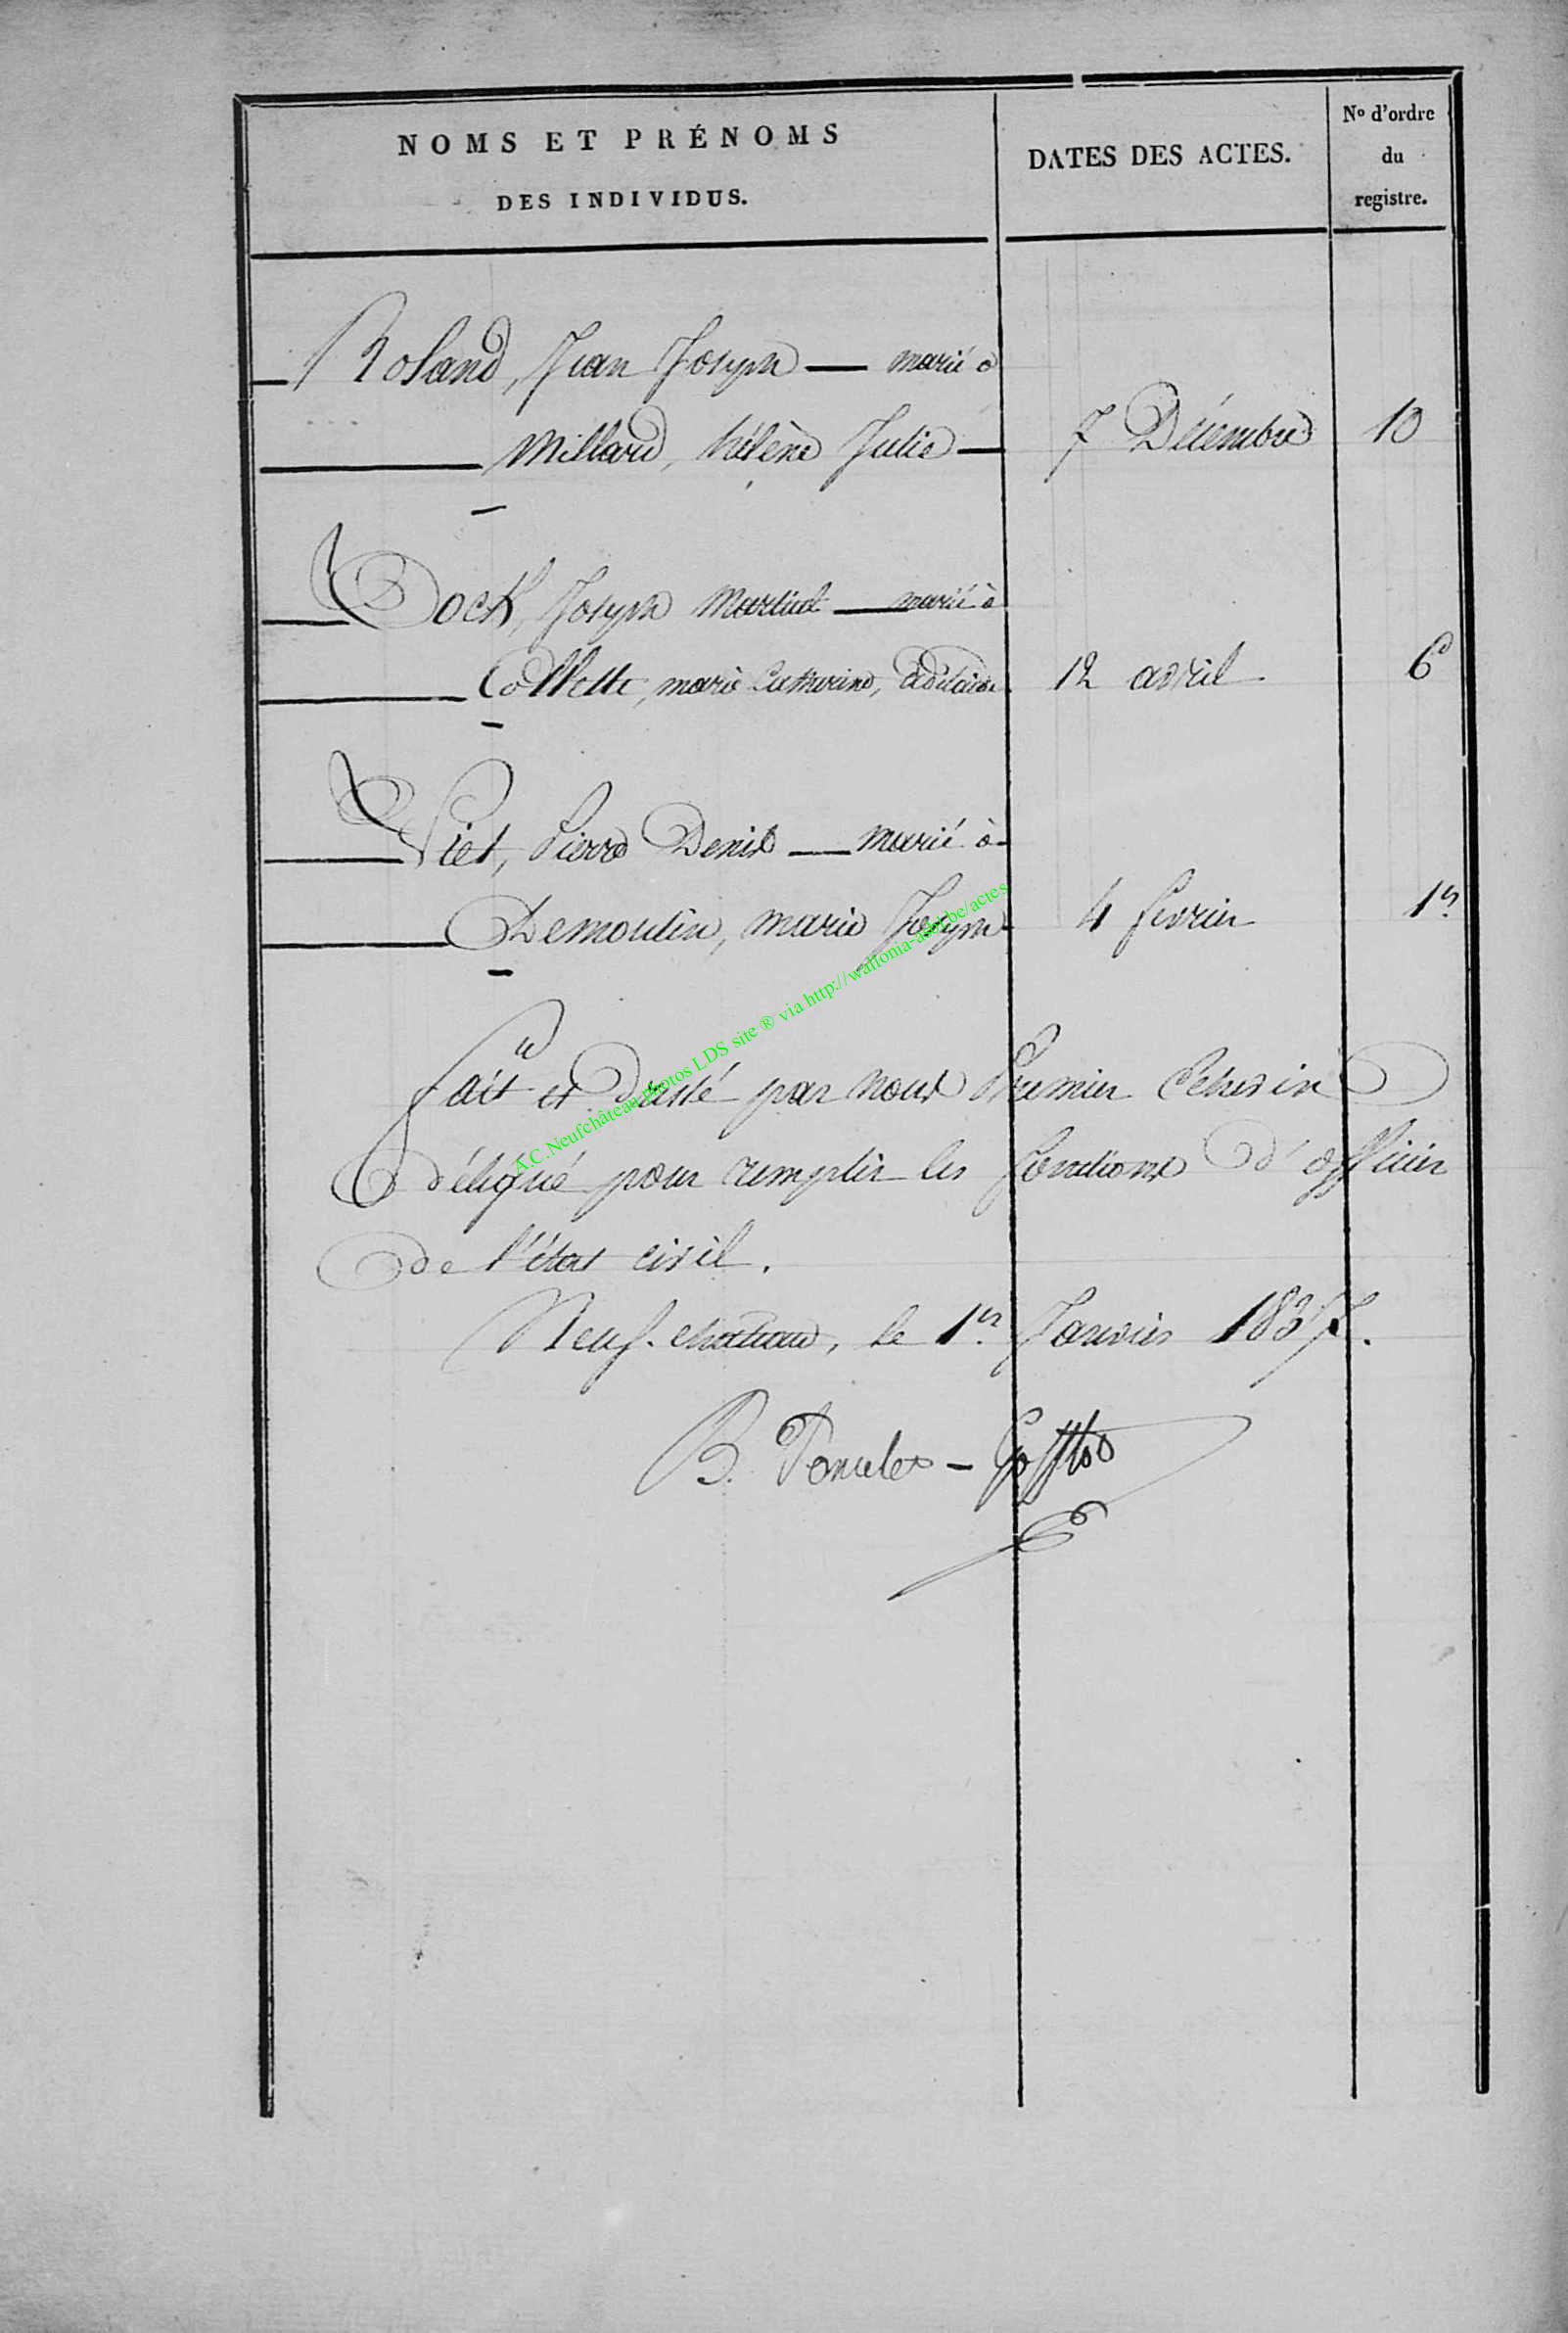 NOMS ET PRÉNOMS
DES INDIVIDUS.
DATES DES ACTES.
N° d'ordre
du
registre.
Roland, Jean Joseph — marié à
Millard, hélène Julie — 7 Décembre 10
Dock, Joseph — marié à
Collette, marie Catherine, adélaide 12 avril 6
Piet, Pierre Denis — marié à
Demoulin, marie Joseph 4 février 1er
fait et par nous Premier Echevin
Délégué pour remplir les fonctions d'officier
de l'état civil.
Neuf-chateau, le 1er Janvier 1837.
B.
A.C.Neufchâteau photos LDS site ® via http://wallonia-asbl.be/actes